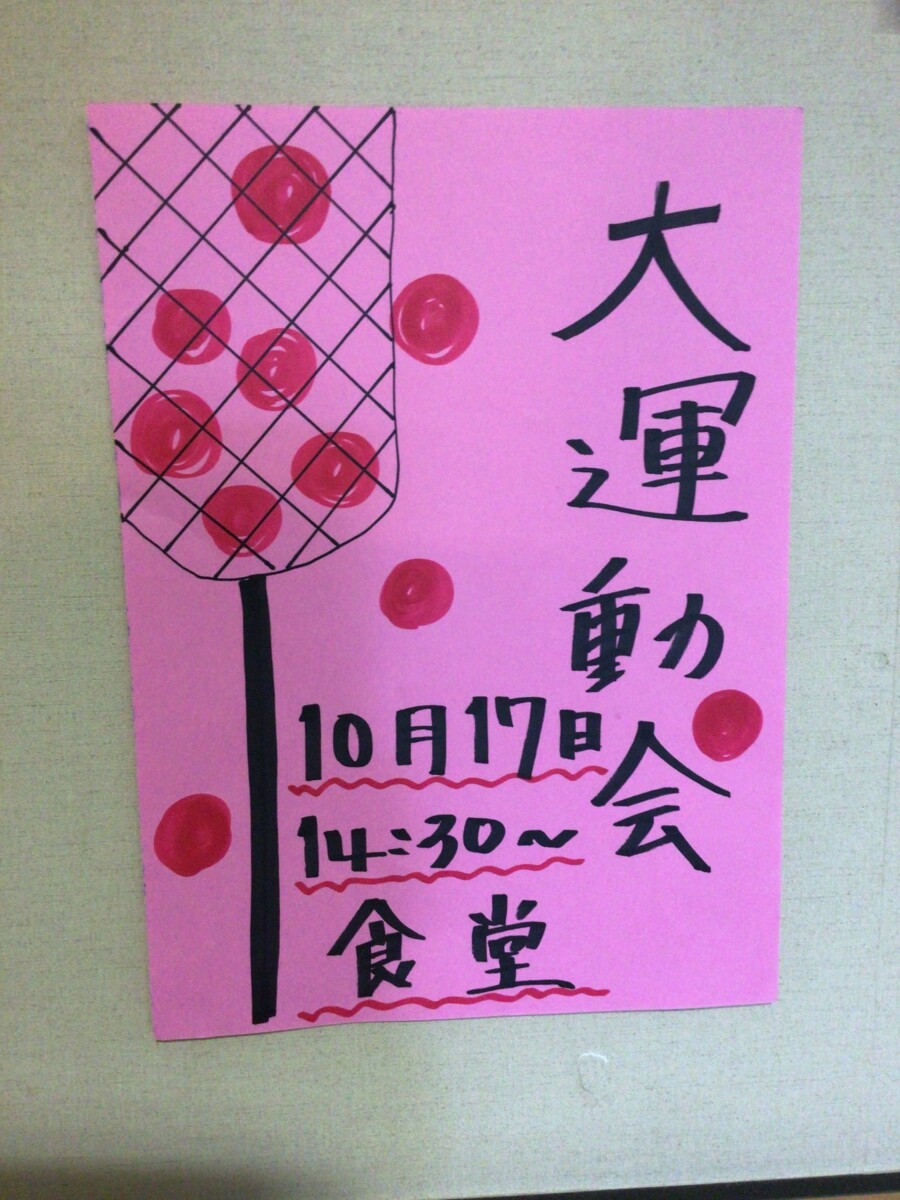 大運動会
10月17日
14:30~
食堂